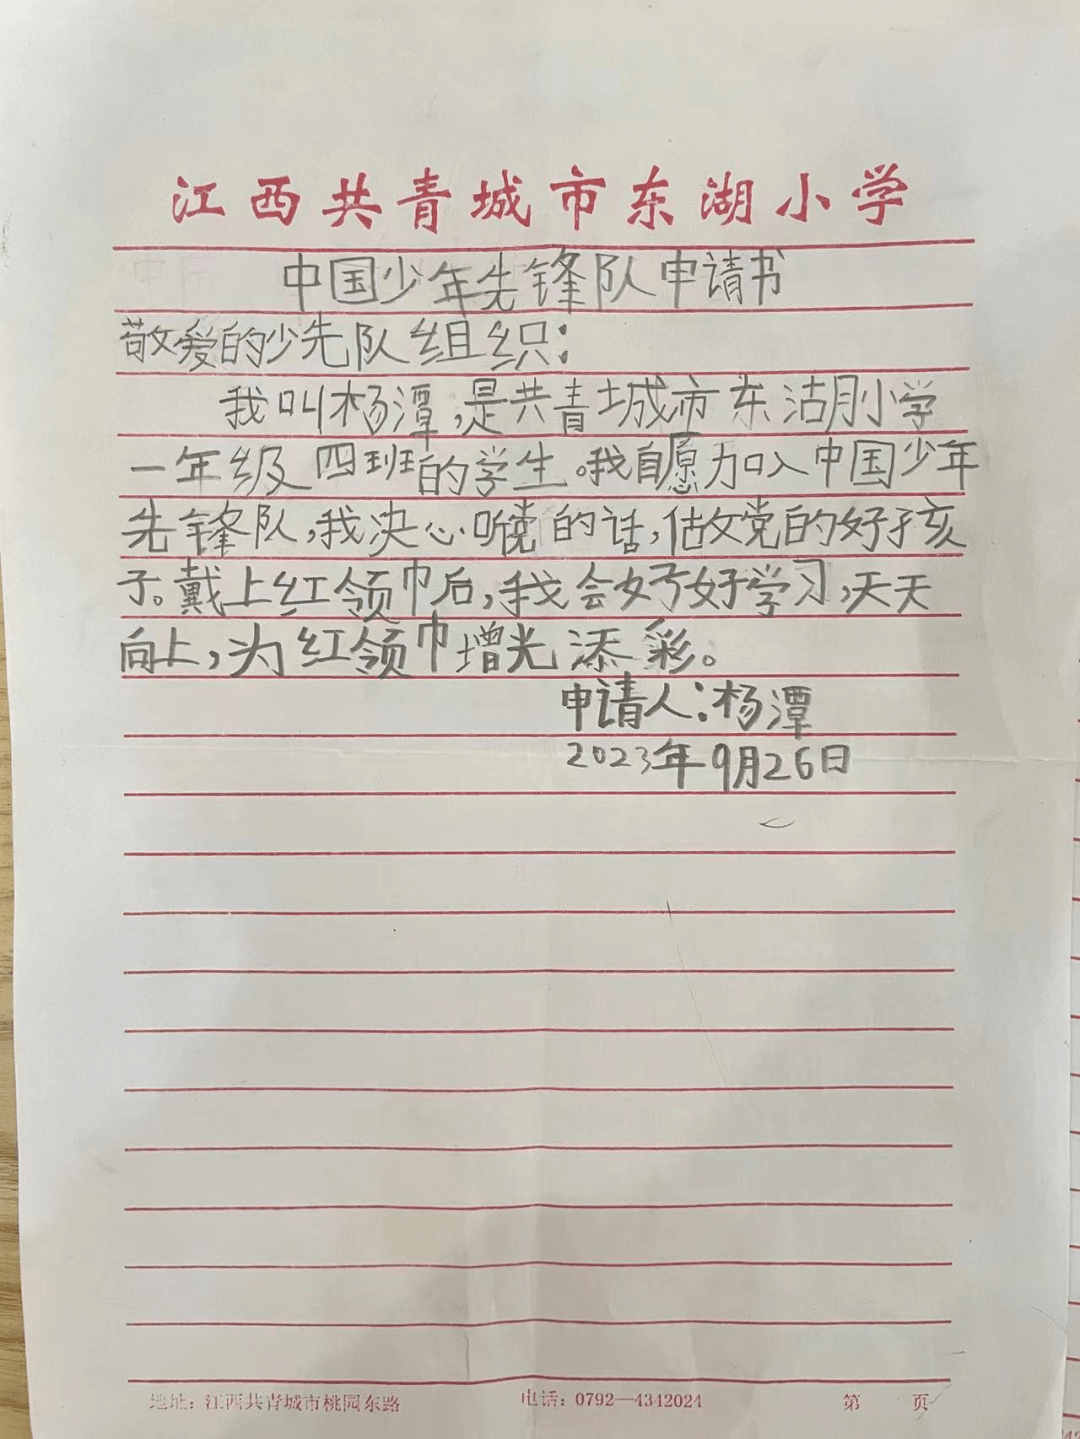 江西共青城市东湖小学
中国少年先锋队申请书
敬爱的少先队组织:
我叫杨潭,是共青城市东湖小学
一年级四班的学生。我自愿加入中国少年
先锋队,我决心听党的话,做党的好孩
子。戴上红领巾后,我会好好学习,天天
向上,为红领巾增光添彩。
申请人:杨潭
2023年9月26日
地址:江西共青城市桃园东路 电话:0792—4342024 第 页